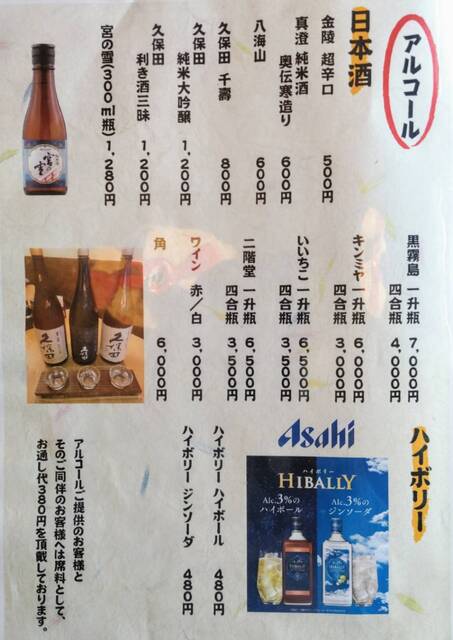 アルコール
日本酒
金陵 超辛口 500円
真澄 純米酒
奥伝寒造り 600円
八海山 600円
久保田 千壽 800円
久保田
純米大吟醸 1,200円
久保田
利き酒三昧 1,200円
宮の雪(300ml瓶) 1,280円
宮の雪
黒霧島 一升瓶 7,000円
四合瓶 4,000円
キンミヤ 一升瓶 6,000円
四合瓶 3,000円
いいちこ 一升瓶 6,500円
四合瓶 3,500円
二階堂 一升瓶 6,500円
四合瓶 3,500円
ワイン 赤/白 3,000円
角 6,000円
久保田
久保田
久保田
ハイボリー
Asahi
ハイボリー
HIBALLY
Alc.3%の
ハイボール
Alc.3%の
ジンソーダ
ハイボリー ハイボール 480円
ハイボリー ジンソーダ 480円
アルコールご提供のお客様と
そのご同伴のお客様へは席料として、
お通し代380円を頂戴しております。